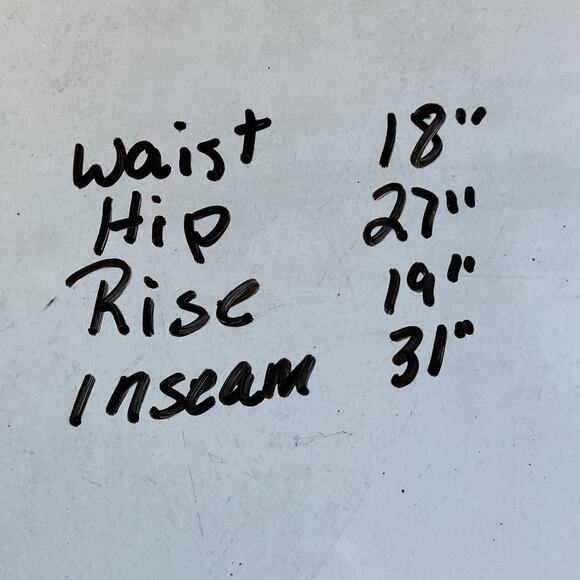 Waist 18"
Hip 27"
Rise 19"
inseam 31"